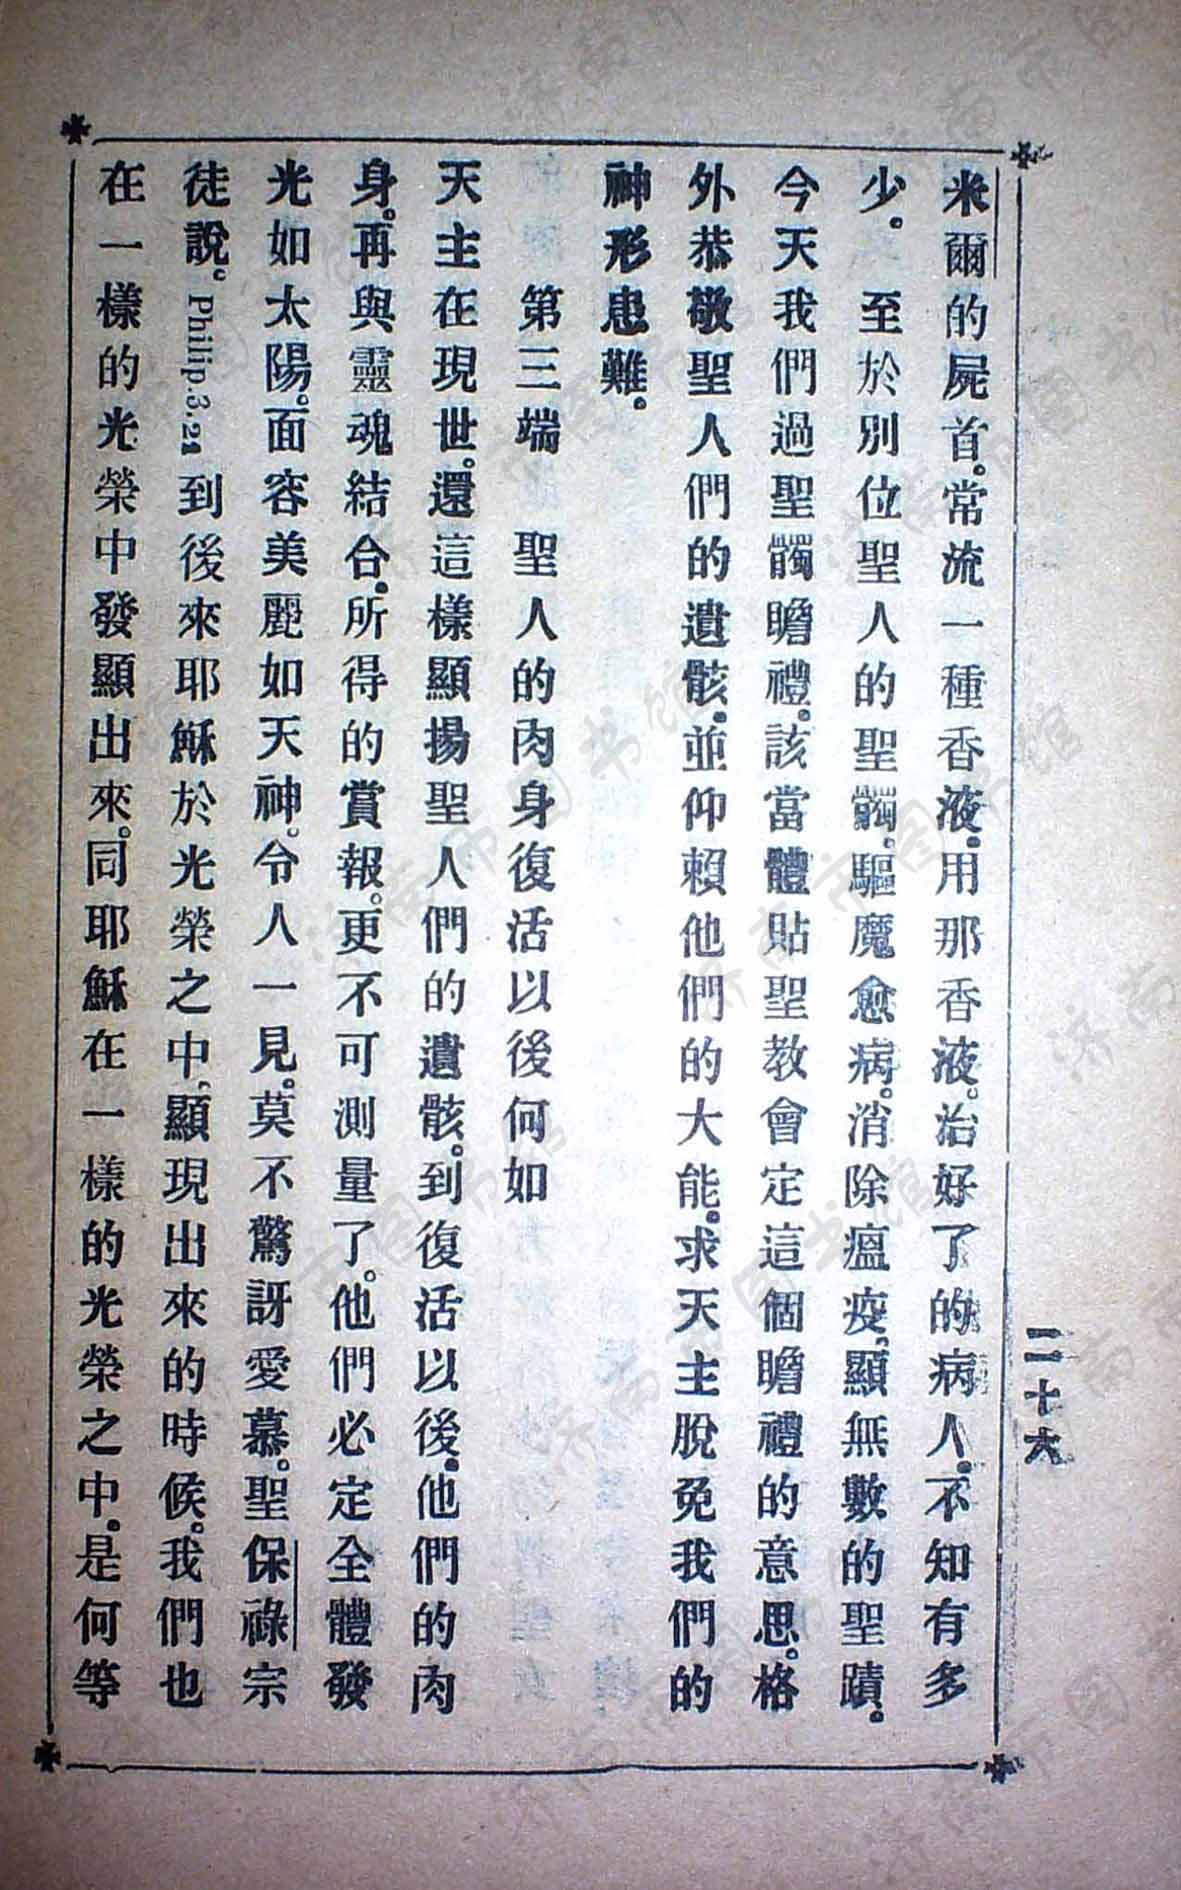 米爾的屍首。常流一種香液。用那香液。治好了的病人。不知有多
少。　至於別位聖人的聖髑。驅魔愈病。消除瘟疫。顯無數的聖蹟。
今天我們過聖髑瞻禮。該當體貼聖教會定這個瞻禮的意思。格
外恭敬聖人們的遺骸。並仰賴他們的大能。求天主脫免我們的
神形患難。
第三端　聖人的肉身復活以後何如
天主在現世。還這樣顯揚聖人們的遺骸。到復活以後。他們的肉
身。再與靈魂結合。所得的賞報。更不可測量了。他們必定全體發
光如太陽。面容美麗如天神。令人一見。莫不驚訝愛慕。聖保祿宗
徒說。Philip.3.21 到後來耶穌於光榮之中。顯現出來的時候。我們也
在一樣的光榮中發顯出來。同耶穌在一樣的光榮之中。是何等
二十六
济南市图书馆